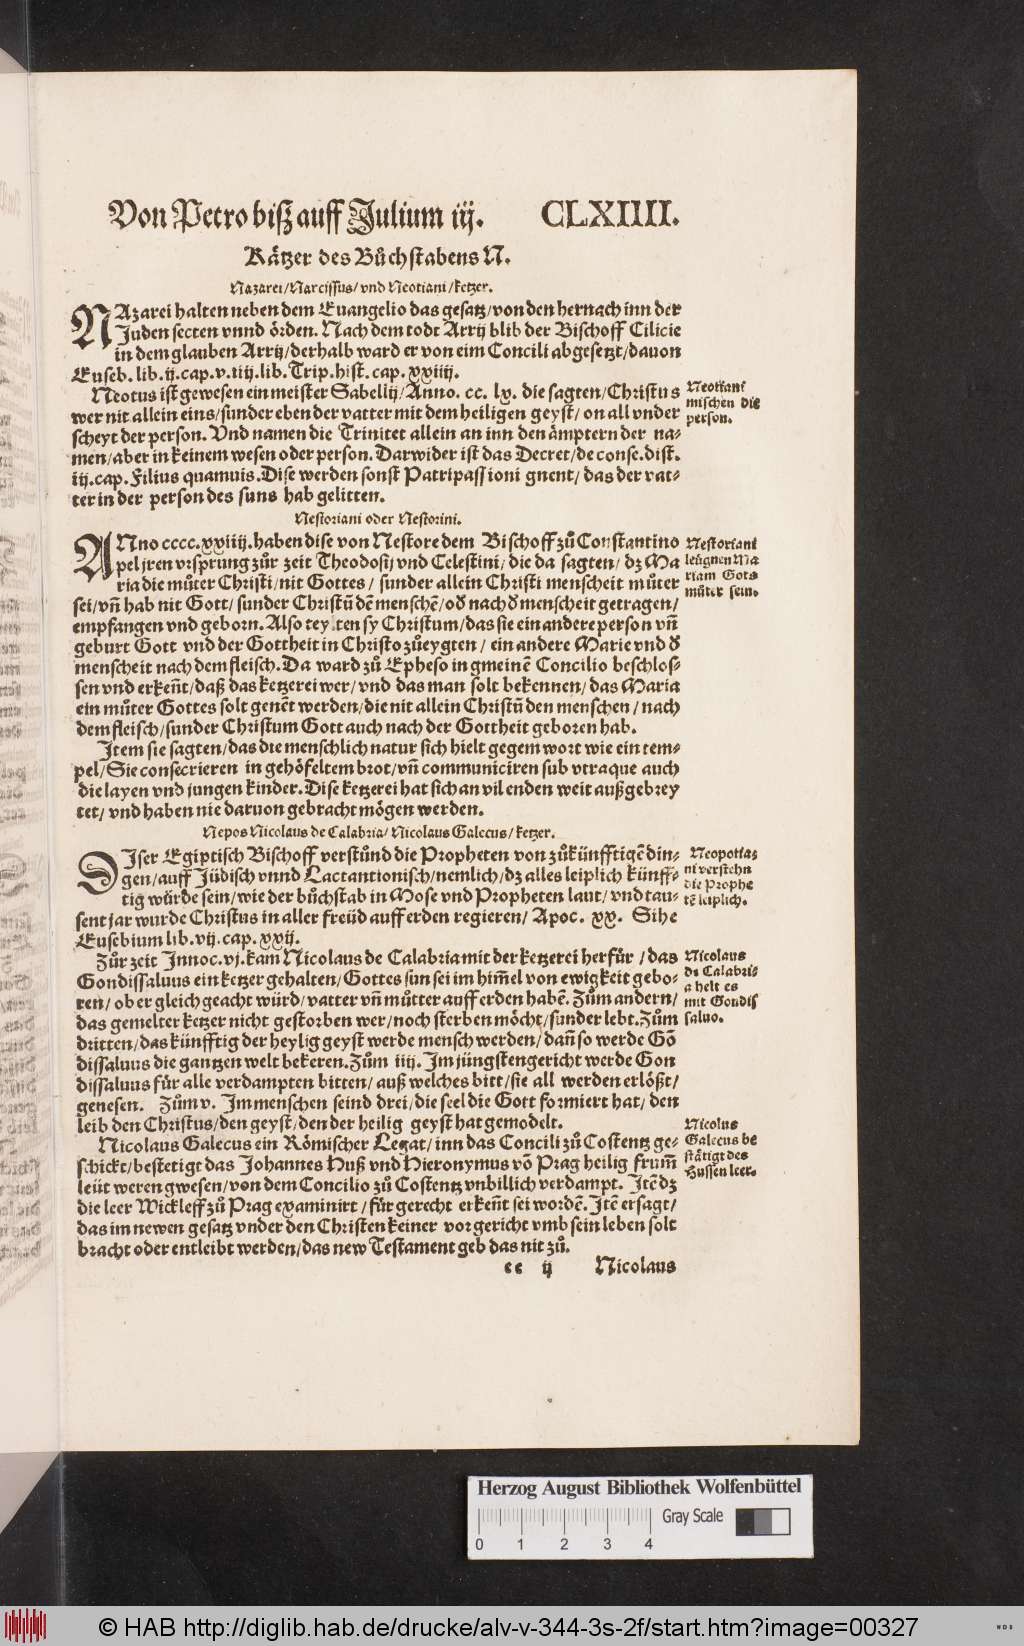 Von Petro biß auff Julium iij. CLXIIII.
Kätzer des Bůchstabens N.
Nazarei/Narcissus/vnd Neotiani/ketzer.
NAzarei halten neben dem Euangelio das gesatz/von den hernach inn der
Juden secten vnnd örden. Nach dem todt Arrij blib der Bischoff Cilicie
in dem glauben Arrij/derhalb ward er von eim Concili abgesetzt/dauon
Euseb. lib. ij. cap. v. iiij. lib. Trip. hist. cap. xxiiij.
Neotus ist gewesen ein meister Sabellij/Anno. cc. lx. die sagten/Christus
wer nit allein eins/sunder eben der vatter mit dem heiligen geyst/on all vnder
scheyt der person. Vnd namen die Trinitet allein an inn den ämptern der na-
men/aber in keinem wesen oder person. Darwider ist das Decret/de conse. dist.
iij. cap. Filius quamuis. Dise werden sonst Patripassioni gnent/das der vat-
ter in der person des suns hab gelitten.
Neotiani
mischen die
person.
Nestoriani oder Nestorini.
ANno cccc.xxiiij. haben dise von Nestore dem Bischoff zů Constantino
pel jren vrsprung zůr zeit Theodosij vnd Celestini/die da sagten/dz Ma
ria die můter Christi/nit Gottes/sunder allein Christi menscheit můter
sei/vñ hab nit Gott/sunder Christũ dẽ menschẽ/oď nach ď menscheit getragen/
empfangen vnd geborn. Also teylten sy Christum/das sie ein andere person vñ
geburt Gott vnd der Gottheit in Christo zůeygten/ein andere Marie vnd ď
menscheit nach dem fleisch. Da ward zů Epheso in gmeinẽ Concilio beschlos-
sen vnd erkeñt/daß das ketzerei wer/vnd das man solt bekennen/das Maria
ein můter Gottes solt genẽt werden/die nit allein Christũ den menschen/nach
dem fleisch/sunder Christum Gott auch nach der Gottheit geboren hab.
Nestoriani
leügnen Ma
riam Gots
můter sein.
Item sie sagten/das die menschlich natur sich hielt gegem wort wie ein tem-
pel/Sie consecrieren in gehöfeltem brot/vñ communiciren sub vtraque auch
die layen vnd jungen kinder. Dise ketzerei hat sich an vil enden weit außgebrey
tet/vnd haben nie daruon gebracht mögen werden.
Nepos Nicolaus de Calabria/Nicolaus Galecus/ketzer.
DIser Egiptisch Bischoff verstůnd die Propheten von zůkünfftigẽ din-
gen/auff Jüdisch vnnd Lactantionisch/nemlich/dz alles leiplich künff-
tig würde sein/wie der bůchstab in Mose vnd Propheten laut/vnd tau-
sent jar wurde Christus in aller freüd auff erden regieren/Apoc. xx. Sihe
Eusebium lib. vij. cap. xxij.
Neopotia-
ni verstehn
die Prophe
tẽ leiplich.
Zůr zeit Innoc. vj. kam Nicolaus de Calabria mit der ketzerei herfür/das
Gondissaluus ein ketzer gehalten/Gottes sun sei im him̃el von ewigkeit gebo-
ren/ob er gleich geacht würd/vatter vñ můtter auff erden habẽ. Zům andern/
das gemelter ketzer nicht gestorben wer/noch sterben möcht/sunder lebt. Zům
dritten/das künfftig der heylig geyst werde mensch werden/dañ so werde Gõ
dissaluus die gantzen welt bekeren. Zům iiij. Im jüngsten gericht werde Gon
dissaluus für alle verdampten bitten/auß welches bitt/sie all werden erlößt/
genesen. Zům v. Im menschen seind drei/die seel die Gott formiert hat/den
leib den Christus/den geyst/den der heilig geyst hat gemodelt.
Nicolaus
de Calabri-
a helt es
mit Gondis
saluo.
Nicolaus Galecus ein Römischer Legat/inn das Concili zů Costentz ge-
schickt/bestetigt das Johannes Huß vnd Hieronymus võ Prag heilig frum̃
leüt weren gwesen/von dem Concilio zů Costentz vnbillich verdampt. Itẽ dz
die leer Wickleff zů Prag examinirt/für gerecht erkeñt sei wordẽ. Itẽ er sagt/
das im newen gesatz vnder den Christen keiner vor gericht vmb sein leben solt
bracht oder entleibt werden/das new Testament geb das nit zů.
Nicolus
Galecus be
stätigt des
Hussen leer.
cc ij Nicolaus
Herzog August Bibliothek Wolfenbüttel
Gray Scale
0 1 2 3 4
© HAB http://diglib.hab.de/drucke/alv-v-344-3s-2f/start.htm?image=00327